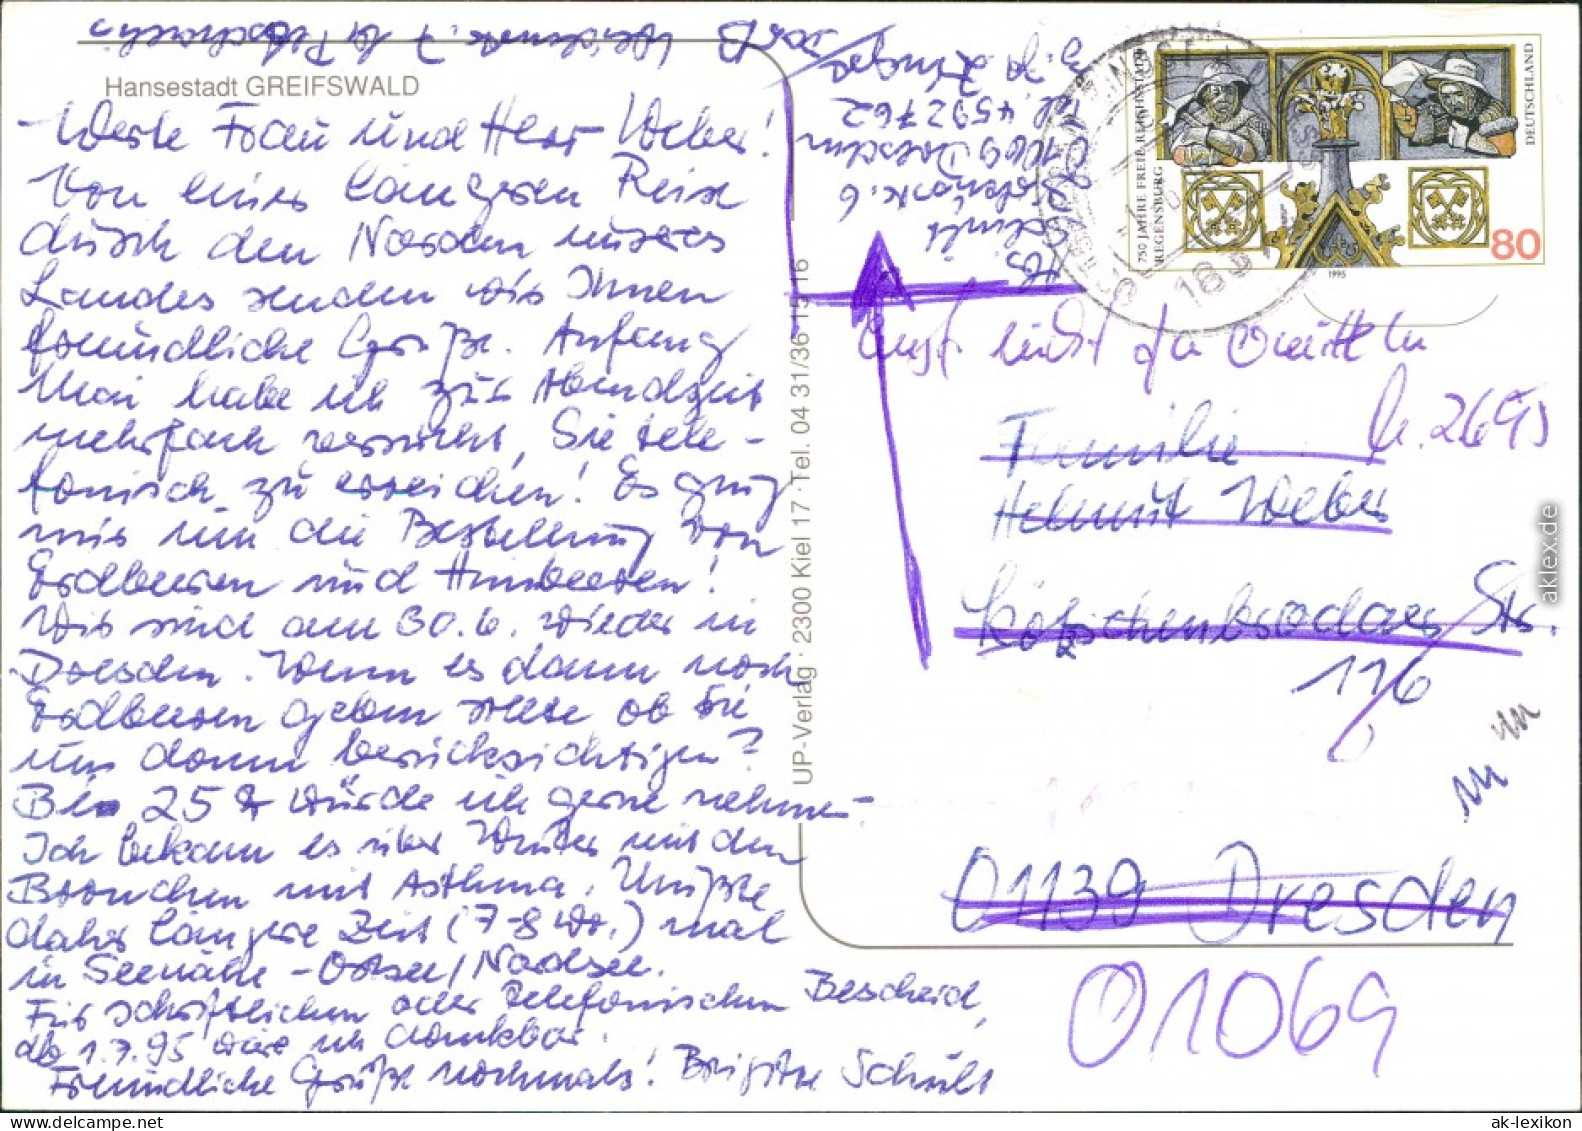 Hansestadt GREIFSWALD
Werte Frau und Herr Weber!
Von einer längeren Reise
durch den Norden unseres
Landes senden wir Ihnen
freundliche Grüße. Anfang
Mai habe ich zur Abendzeit
mehrfach versucht, Sie tele-
fonisch zu erreichen! Es ging
mir um die Bestellung von
Erdbeeren und Himbeeren!
Wir sind am 30.6. wieder in
Dresden. Wenn es dann noch
Erdbeeren geben sollte ob Sie
uns dann berücksichtigen?
Bis 25 würde ich gerne nehmen.
Ich bekam es über Winter mit den
Bronchien mit Asthma. Mußte
daher längere Zeit (7-8 Wo.) mal
in Seenähe - Ostsee/Nordsee.
Für schriftlichen oder telefonischen Bescheid,
ab 1.7.95 wäre ich dankbar.
Freundliche Grüße nochmals! Brigitte Schulz
UP-Verlag · 2300 Kiel 17 · Tel. 04 31/36 15 16
Abs.
01069 Dresden
Tel. 4592762
750 JAHRE FREIE REICHSSTADT
REGENSBURG
DEUTSCHLAND
80
1995
Familie
Helmut Weber
Kötzschenbrodaer Str.
116
01139 Dresden
01069
aklex.de
ak-lexikon.de